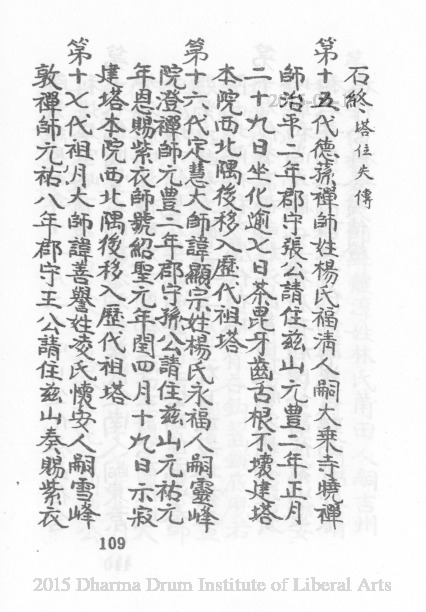 石終 塔住失傳
第十五代德蓀禪師姓楊氏福清人嗣大乘寺曉禪
師治平二年郡守張公請住茲山元豊二年正月
二十九日坐化逾七日茶毘牙齒舌根不壞建塔
本院西北隅後移入歷代祖塔
第十六代定慧大師諱顯宗姓楊氏永福人嗣靈峰
院澄禪師元豊二年郡守孫公請住茲山元祐元
年恩賜紫衣師號紹聖元年閏四月十九日示寂
建塔本院西北隅後移入歷代祖塔
第十七代祖月大師諱善譽姓凌氏懷安人嗣雪峰
敦禪師元祐八年郡守王公請住茲山奏賜紫衣
109
2015 Dharma Drum Institute of Liberal Arts